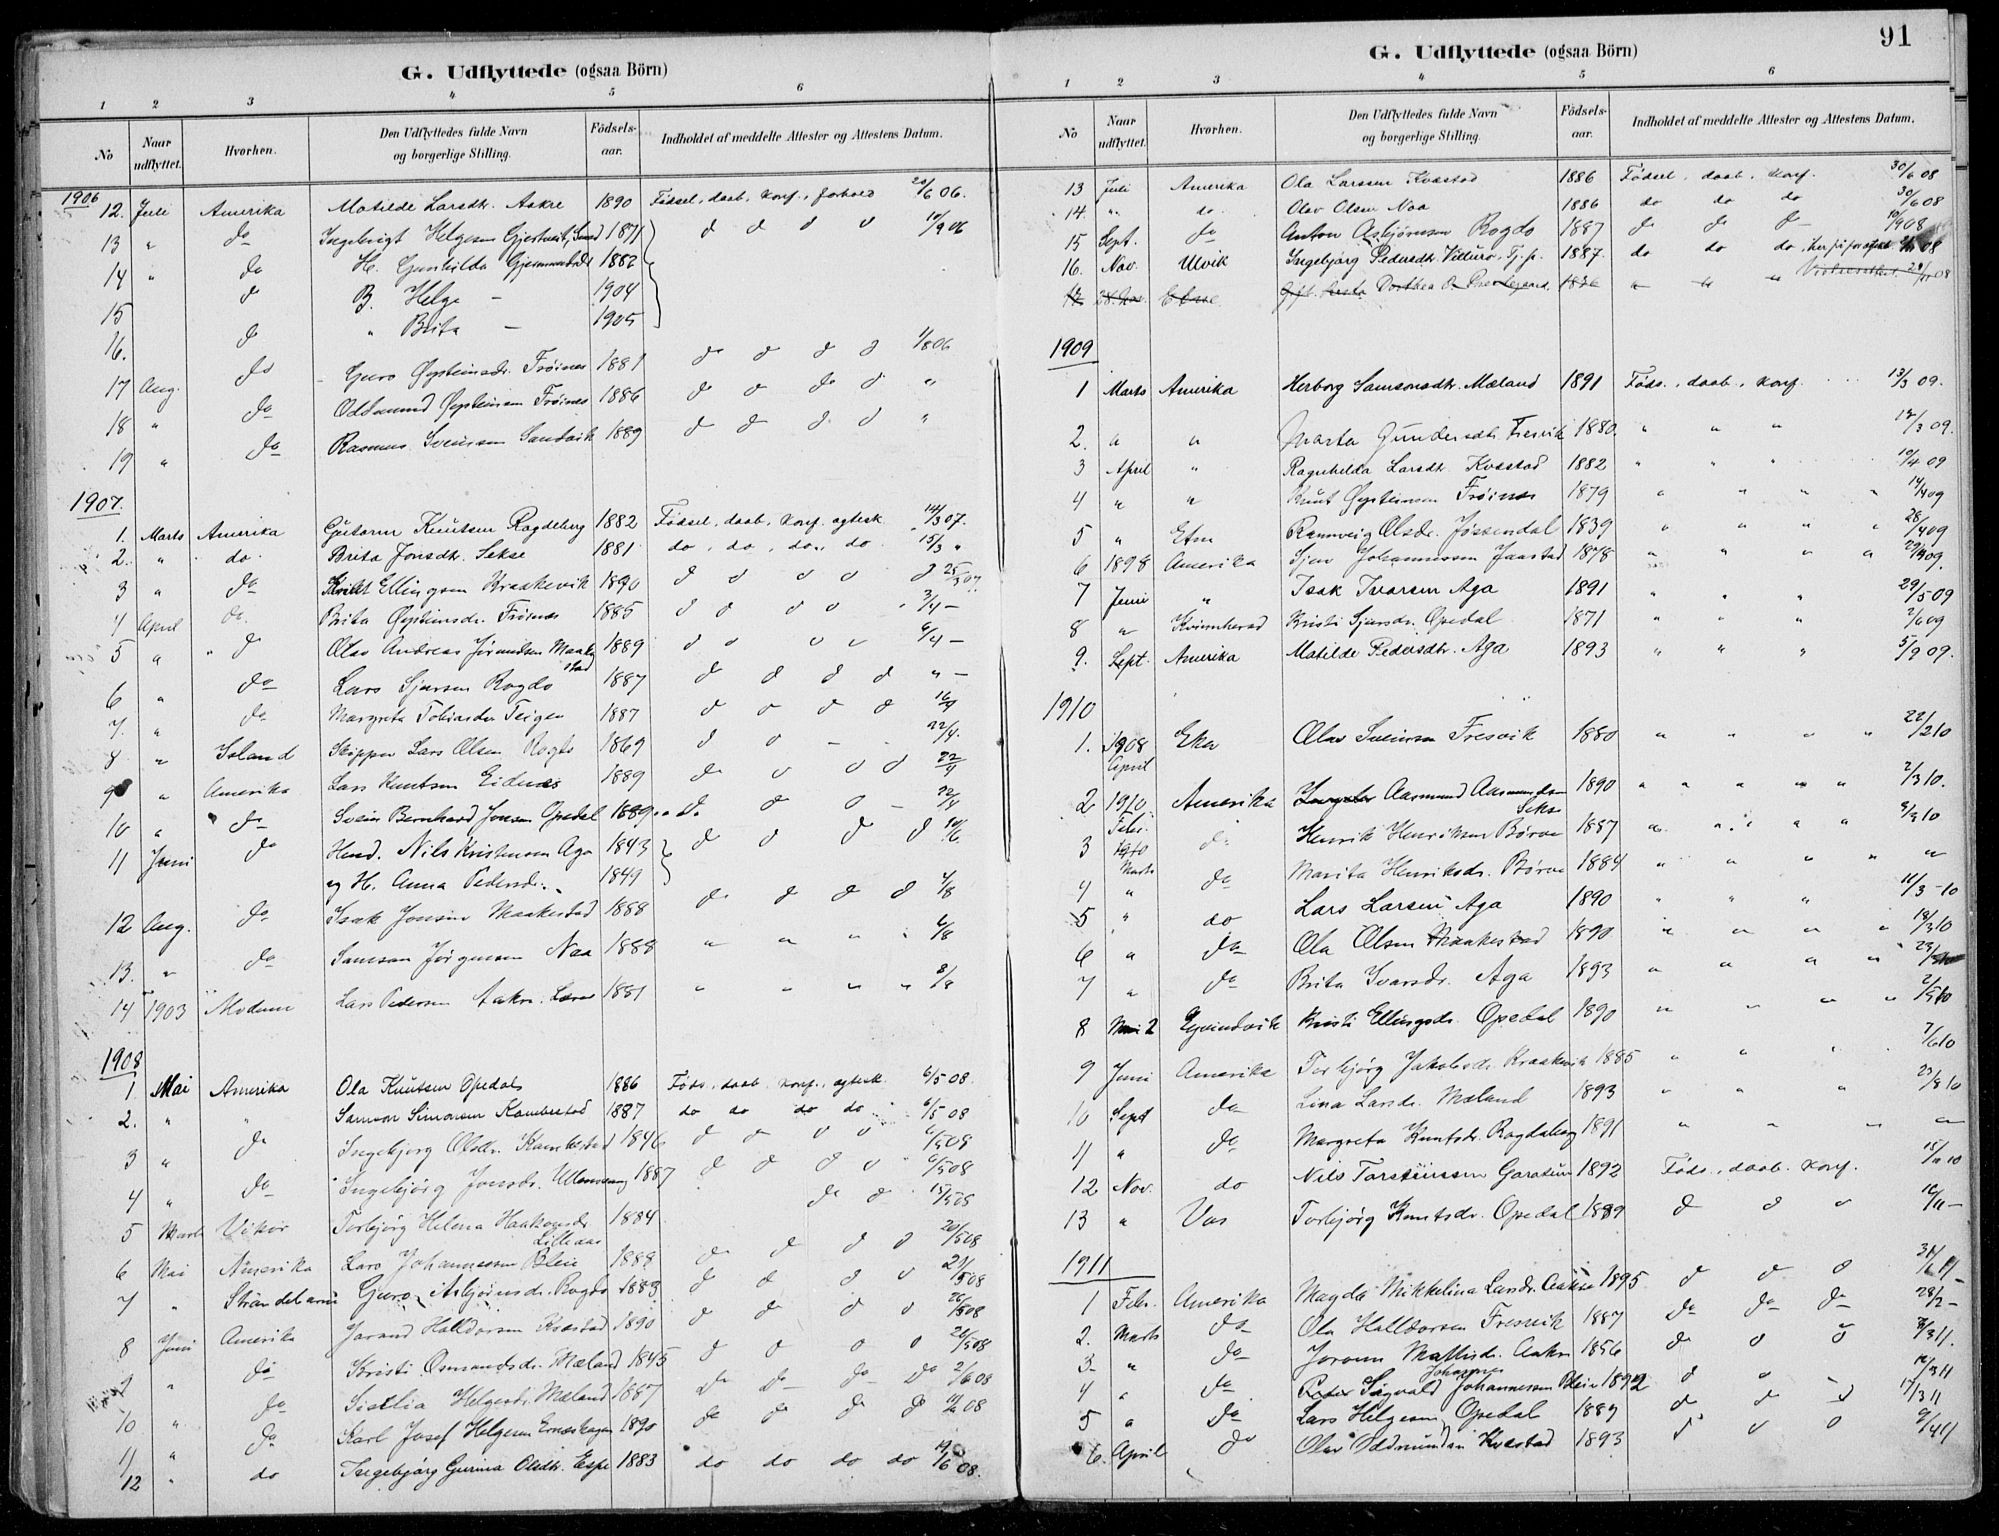 G. Udflyttede (ogsaa Börn)
1 2 3 4 5 6
No Naar udflyttet. Hvorhen. Den Udflyttedes fulde Navn og borgerlige Stilling. Födsels-aar. Indholdet af meddelte Attester og Attestens Datum.
1906
12. Juli Amerika Matilde Larsdtr. Aakre 1890 Fødsel, daab, konf., forhold 20/6 06.
13 " do Ingebrigt Helgesen 1871 d d d d 10/9 06
14 " do H. Gunhilda 1882
15 d B. Helge - 1904
16. d " Brita - 1905
17 Aug. do Guro Øysteinsdr. Frøines 1881 d d d d 1/8 06
18 " do Oddmund Øysteinsen Frøines 1886 d d d d "
19 " do Rasmus Sveinsen Sandvik 1889 d d d d "
1907.
1. Marts Amerika Gutorm Knutsen Ragdeberg 1882 Fødsel, daab, konf. egtesk. 14/3 07.
2. " do. Brita Jonsdtr. Sekse 1881 do, do, do, do 15/3 "
3 " do Ellingsen Kraakevik 1890 d d d d 25/3 07
4 April do. Brita Øysteinsdr. Frøines 1885 d d d d 3/4 -
5 " " d Olav Andreas Jørundsen Maakestad 1889 d d d d 6/4 -
6 " do Lars Sjursen Rogdo 1887 d d d d " -
7. " do Margreta Tobiasdr Teigen 1887 d d d d 16/4
8 " Island Skipper Lars Olsen Rogdo 1869 d d - - 22/4.
9 " Amerika Lars Knutsen Eidnes 1889 do d d d 22/4
10 " do Svein Bernhard Jonsen Opedal 1889 d. d d - 22/4
11 Juni do Husd. Nils Kristensen Aga 1843 d d d d 10/6.
og H. Anna Pedersdr. " 1849
12 Aug. do Isak Jonsen Maakestad 1888 d d d d 4/8
13. " do Samson Jørgensen Naa 1888 " " " " 6/8
14 1903 Modum Lars Pedersen Aakre. Lærer 1881 " " " " 8/8
1908
1 Mai Amerika Ola Knutsen Opedal 1886 Føds. daab konf., egtesk. 6/5 08.
2. " " Samson Simonsen Kambestad 1887 do do do do 6/5 08
3 " do Ingebjørg Olsdtr. Kambestad 1846 d d d d 6/5 08
4 " do Ingebjørg Jonsdr. Ullensvang 1887 d d d d 6/5 08
5 Marts Vikør Torbjørg Helena Haakonsdr Lilleaas 1884 do d 15/5 08
6 Mai Amerika Lars Johannessen Bleie 1888 do d d d 20/5 08
7 " Strandebarm Guro Asbjørnsdr. Rogdo 1883 d d d d 21/5 08
8 Juni Amerika Jarand Halldorsen Kvæstad 1890 d d d d 26/5 08
9 " do Kristi Osmundsdr. Mæland 1845 d d d d 20/5 08
10 " do Sicilia Helgesdr. Mæland 1887 do do do do 2/6 08
11 " do Karl Josef Helgesen 1890 do d d d 08
12 " do Ingebjørg Gurina Olsdtr. Espe 1883 do do do do 19/6 08.
G. Udflyttede (ogsaa Börn) 91
1 2 3 4 5 6
No Naar udflyttet. Hvorhen. Den Udflyttedes fulde Navn og borgerlige Stilling. Födsels-aar. Indholdet af meddelte Attester og Attestens Datum.
13 Juli Amerika Ola Larssen Kvæstad 1886 Fødsel, daab, konf. 30/6 08
14. " do. Olav Olsen Naa 1886 do do do 30/6 08
15 Sept. do Anton Asbjørnsen Rogdo 1887 d d d 10/9 08
16. Nov. Ulvik Ingebjørg Pedersdtr. 1887. do do do 08
17 28. Nov. Dorthea 1836 " " "
1909
1 Marts Amerika Herborg Samsonsdtr. Mæland 1891 Føds., daab, konf. 13/3 09.
2. " " Marta Gundersdtr. Fresvik 1880. " " " 17/3 09.
3 April " Ragnhilda Larsdtr Kvæstad 1882 " " " 10/4 09
4 " " Knut Øysteinsen Frøines 1879 " " " " 14/4 09
5 " Etne Rannveig Olsdr. Jøssendal 1839 " " " " 28/4 09
6 1898 Amerika Sjur Johannessen Jaastad 1878 " " " " 29/4 09.
7 Juni " Isak Ivarsen Aga 1891 " " " 29/5 09
8 " Kvinnherad Kristi Sjursdr. Opedal 1871 " " " 2/6 09
9. Sept. Amerika Matilde Pedersdtr. Aga 1893 " " " 5/9 09.
1910
1. 1908 April Eker Olav Sveinsen Fresvik 1880 " " " " 22/2 10
2 1910. Febr. Amerika Aasmund Aasmundsen Sekse 1890 " " " " " 2/3 10.
3 1910 Marts do Henrik Henriksen Børve 1887 " " " " 8/3 10
4 " do Marita Henriksdr. Børve 1884 " " " " "
5 " do Lars Larsen Aga 1890 " " " 11/3 - 10
6 " do Ola Olsen Maakestad 1890 " " " " 18/3 10
7 " do Brita Ivarsdr. Aga 1893 " " " "
8 Mai 2 Gyvindvik Kristi Ellingsdr. Opedal 1890 " " " " 2/5 10
9 Juni Amerika Torbjørg Jakobsdr. Kraakevik 1885 " " " 7/6 10
10 Sept do Lina Larsdr. Mæland 1893 " " " 23/8 10
11 " do Margreta Knutsdr. Ragdeberg 1891 " " " "
12 Nov. do Nils Torsteinssen Garatun 1892 Føds., daab, konf. 15/11 10
13 " Vos Torbjørg Knutsdr. Opedal 1889 d d d 16/11 -
1911
1 Febr. Amerika Magda Mikkelina Larsdr. Aakre 1895 d d d 31/1 11
2. Marts do Ola Halldorsen Fresvik 1887 do do do 28/2 -
3 " do Jorunn Mattisdr. Aakre 1856 d d d 8/3 11.
4 " do Peter Sigvald Johannes Johannessen Bleie 1892 d " 12/3 11
5 " do Lars Helgesen Opedal 1889 d d d 17/3 11
6. April do Olav Oddmundsen Kvæstad 1893 d d d 6/4 11